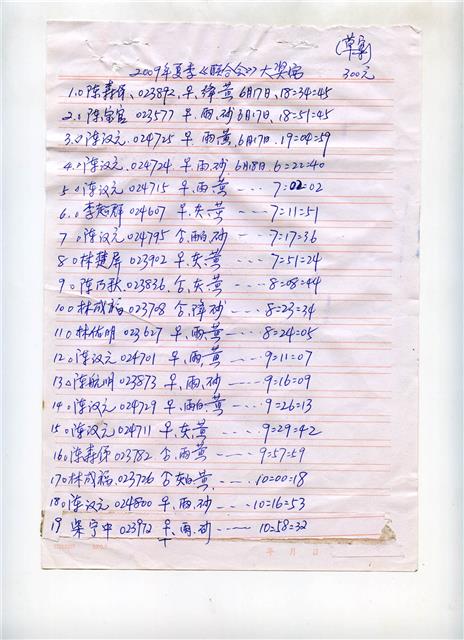 (草案)
2009年夏季《联合会》大奖赛 300元
1.陈森保、023892、早、绛、黄 6月17日、18=34=45
2.陈宝宝 023577 早、雨、砂 6月17日、18=51=45
3.陈汉元 024725 早 雨、黄、6月17日、19=04=59
4.陈汉元、024724 早、雨、砂、6月18日、6=22=40
5.陈汉元 024715 早、雨、黄 --- 7=02=02
6.李超群 024607 早、灰、黄 --- 7=11=51
7.陈汉元 024795 仓、雨、砂 --- 7=17=36
8.林楚屏 023902 早、灰、黄 --- 7=51=24
9.陈乃秋、023836、仓、灰、黄 --- 8=08=44
10.林成福 023708 仓、绛、砂 --- 8=23=34
11.林佑明 023627 早、雨、黄 --- 8=24=05
12.陈汉元 024701 早、雨、黄 --- 9=11=07
13.陈航明 023873 早、雨、砂 --- 9=16=09
14.陈汉元 024729 早、雨白、黄 --- 9=26=13
15.陈汉元 024711 早、灰、黄 --- 9=29=42
16.陈森保 023782 仓、雨、黄 --- 9=57=59
17.林成福、023726 仓、灰白、黄 --- 10=00=18
18.陈汉元 024800 早、雨、砂 --- 10=16=53
19 梁宁中 023972 早、雨、砂 --- 10=58=32
年 月 日